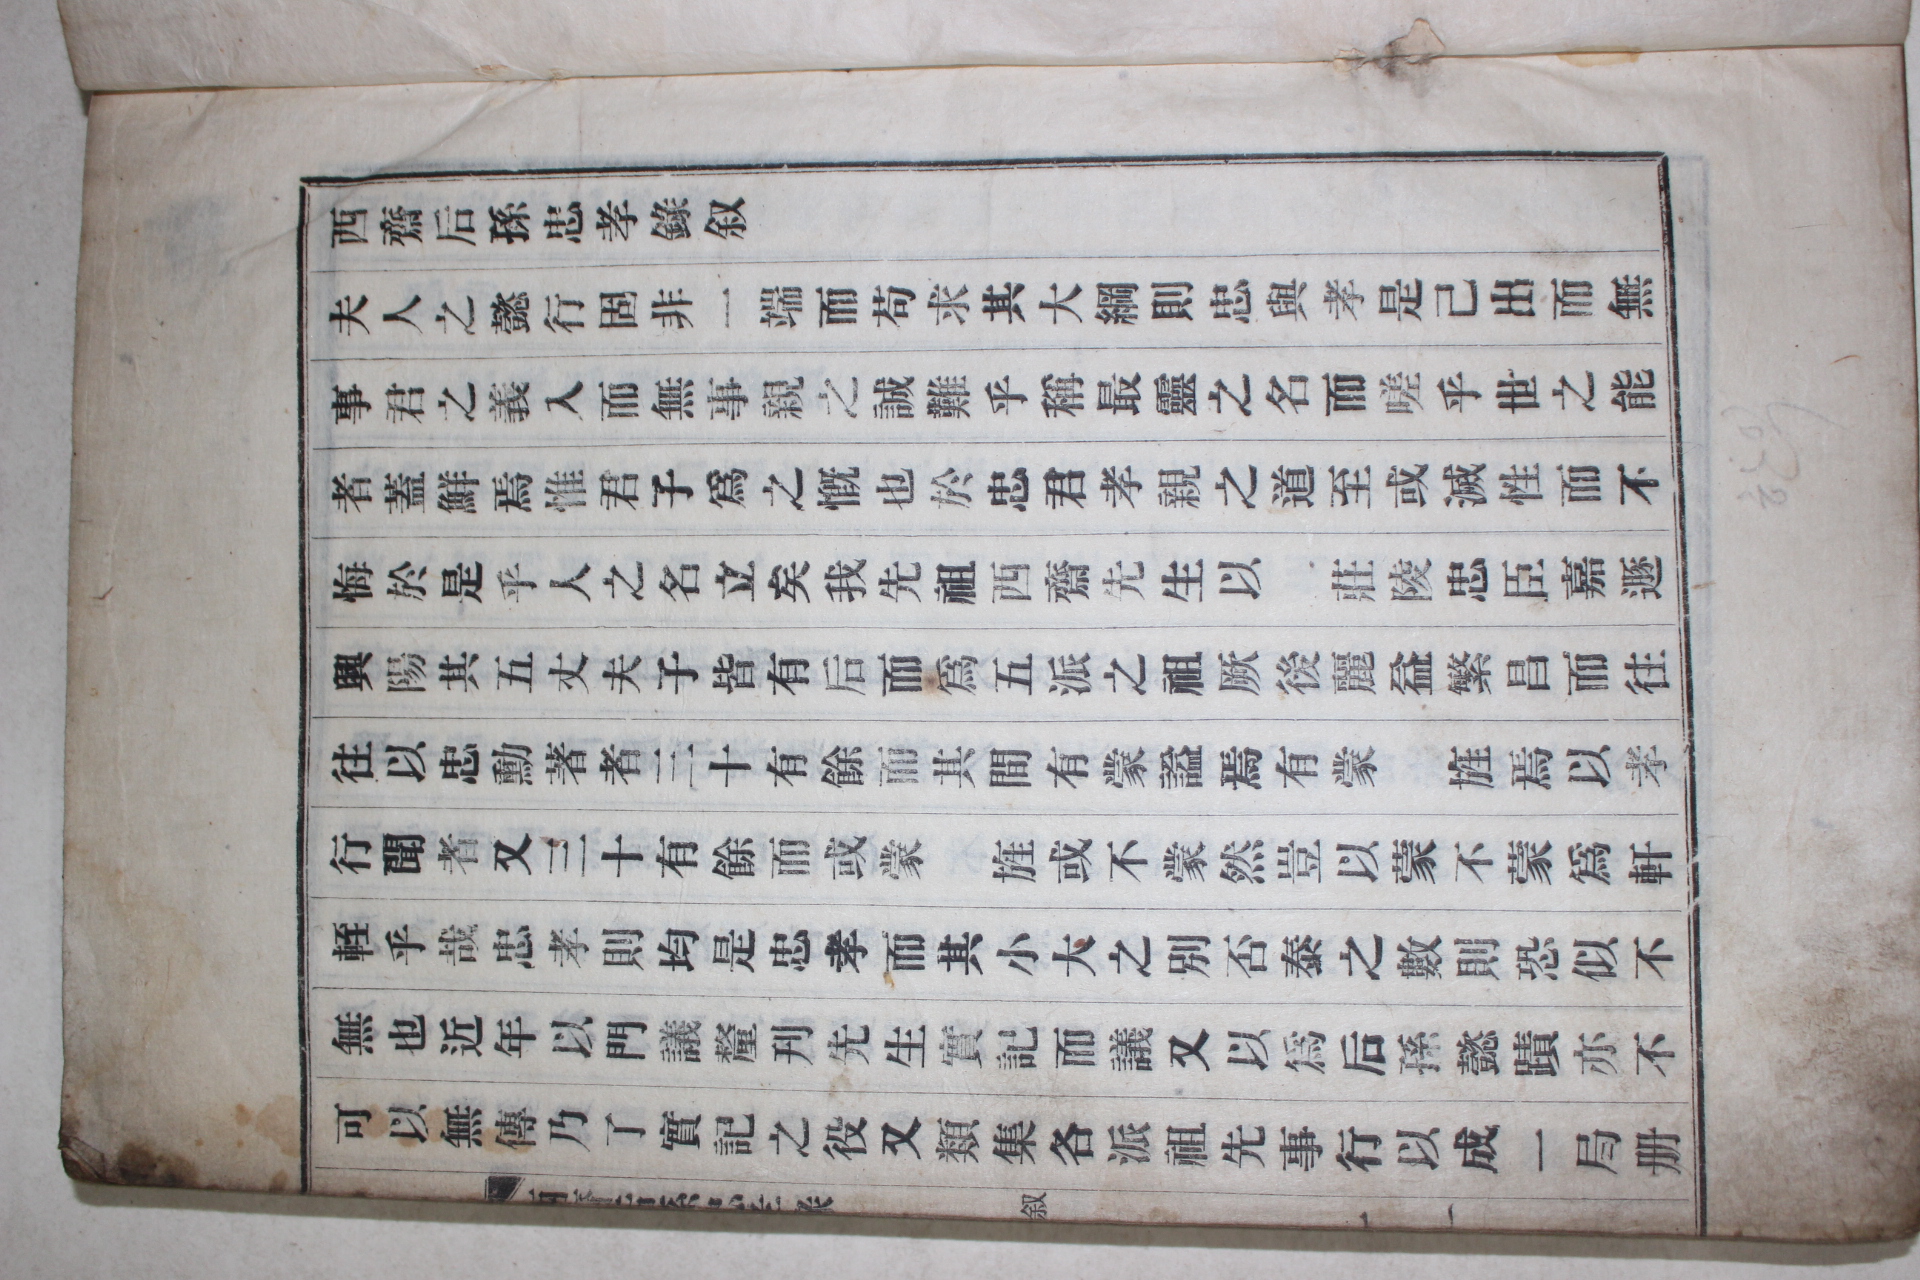 西齋后孫忠孝錄叙
夫人之懿行固非一端而苟求其大綱則忠與孝是已出而無
事君之義入而無事親之誠難乎稱最靈之名而嗟乎世之能
者蓋鮮焉惟君子爲之慨也於忠君孝親之道至或滅性而不
悔於是乎人之名立矣我先祖西齋先生以 莊陵忠臣嘉遯
興陽其五丈夫子皆有后而爲五派之祖厥後麗益繁昌而往
往以忠勳著者三十有餘而其間有蒙謚焉有蒙 旌焉以孝
行聞者又三十有餘而或蒙 旌或不蒙然豈以蒙不蒙爲軒
輊乎哉忠孝則均是忠孝而其小大之別否泰之數則恐似不
無也近年以門議釐刊先生實記而議又以爲后孫懿蹟亦不
可以無傳乃了實記之役又類集各派祖先事行以成一局册
叙 一